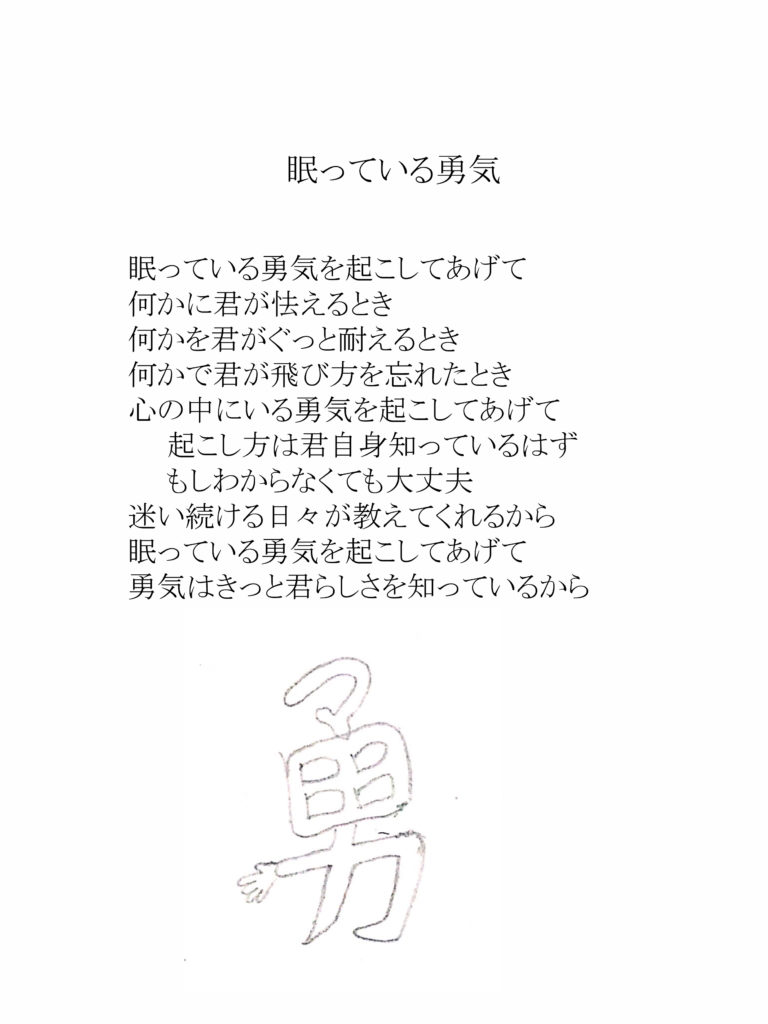 眠っている勇気
眠っている勇気を起こしてあげて
何かに君が怯えるとき
何かを君がぐっと耐えるとき
何かで君が飛び方を忘れたとき
心の中にいる勇気を起こしてあげて
起こし方は君自身知っているはず
もしわからなくても大丈夫
迷い続ける日々が教えてくれるから
眠っている勇気を起こしてあげて
勇気はきっと君らしさを知っているから
勇